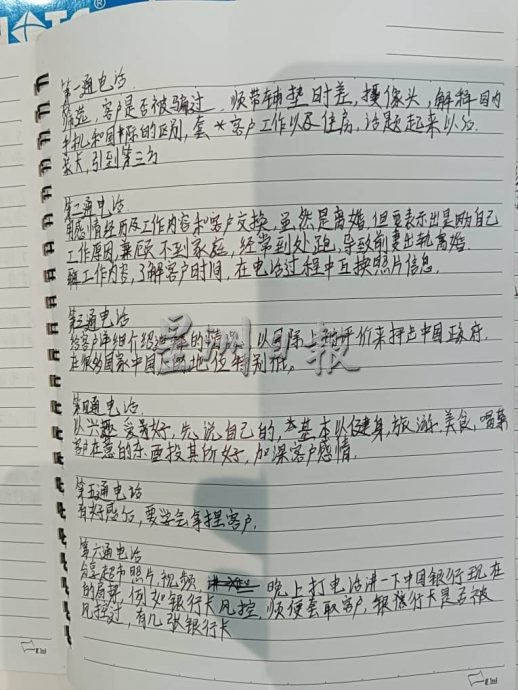 第一通电话
筛选,客户是否被骗过.顺带铺垫时差,摄像头,解释国内
手机和国际的区别,套*客户工作以及住房,话题起来以后
果大,引到第三方
第二通电话
用感情经历及工作内容和客户交换,虽然是离婚,但要表示出是因自己
工作原因兼顾不到家庭,经常到处跑,导致前妻出轨离婚
工作内容,了解客户时间,在电话过程中互换照片信息.
第三通电话
给客户详细介绍的情,以国际上的评价来抨击中国政府.
在很多国家中国的地位特别低.
星洲日報
第四通电话.
以兴趣爱好,先说自己的,基本以健身,旅游,美食,唱歌
客户在意的东西投其所好,加深客户感情.
第五通电话
有好感后,要学会拿捏客户.
第六通电话
分享超市照片,视频 晚上打电话讲一下中国银行现在
的局势,例如银行卡风控.顺便套取客户,银行卡是否被
风控过,有几张银行卡